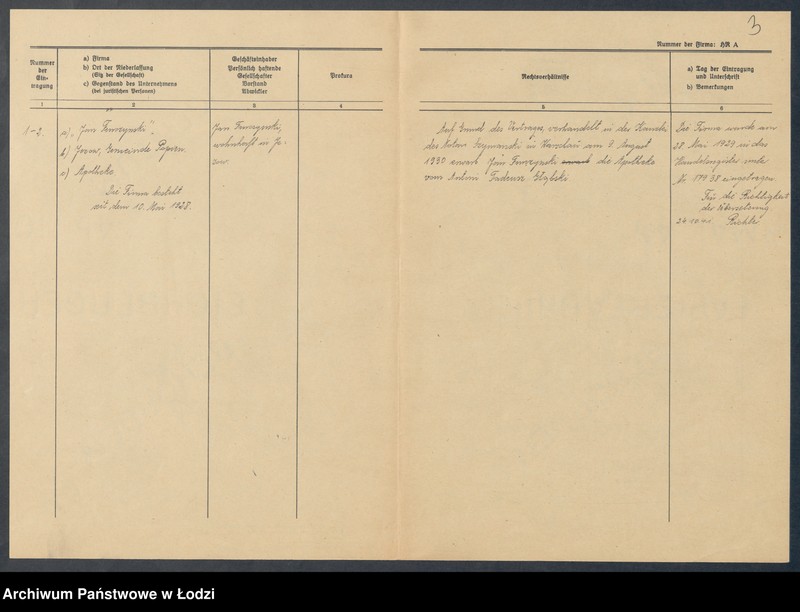 3
Nummer der Firma: HR A
Nummer
der
Ein-
tragung
a) Firma
b) Ort der Niederlassung
(Sitz der Gesellschaft)
c) Gegenstand des Unternehmens
(bei juristischen Personen)
Geschäftsinhaber
Persönlich haftende
Gesellschafter
Vorstand
Abwickler
Prokura
Rechtsverhältnisse
a) Tag der Eintragung
und Unterschrift
b) Bemerkungen
1
2
3
4
5
6
1-2.
a) „Jan
b) Gemeinde
c) Apotheke
Die Firma besteht
seit dem 15. Mai 1928.
Jan
wohnhaft in
Auf Grund des Vertrages, verhandelt in der Kanzlei
des Notars Szymanski in Warschau am 2. August
1930 erwarb Jan erwarb die Apotheke
vom Antoni Tadeusz
Die Firma wurde am
28 Mai 1929 in das
Handelsregister unter
Nr eingetragen
Für die Richtigkeit
der Übersetzung
Archiwum Państwowe w Łodzi